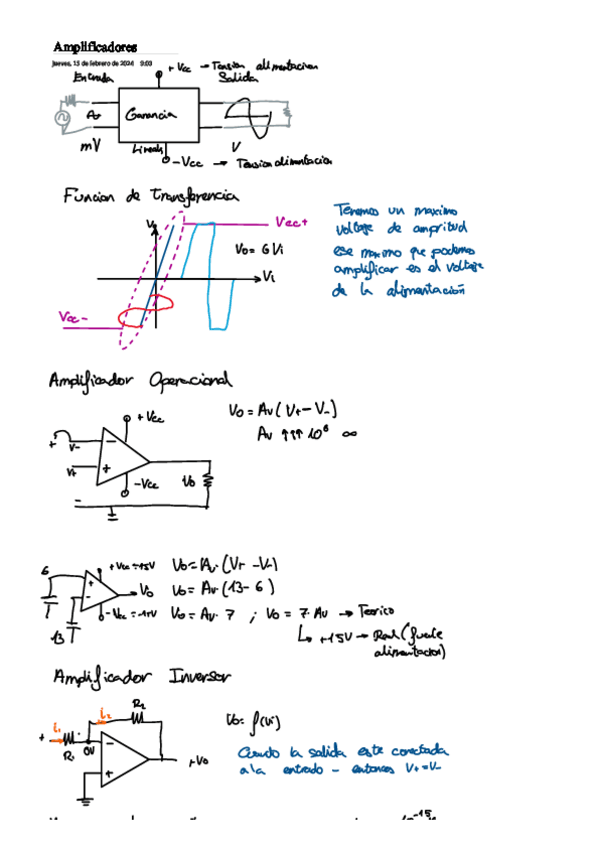 Amplificadores
jueves, 15 de febrero de 2024 9:03
+ Vcc → Tension alimentacion
Entrada Salida
Av Ganancia
mV Lineal V
-Vcc → Tension alimentacion
Funcion de transferencia
Vo Vcc+
Vo = G Vi
Vi
Vcc-
Tenemos un maximo
voltaje de ampritud
ese maximo que podemos
amplificar es el voltaje
de la alimentación
Amplificador Operacional
+ Vcc Vo = Av (V+ - V-)
Av ↑↑↑ 10⁶ ∞
+ V- -
V+ +
-Vcc Vo
-
6 + Vcc = 15V Vo = Av · (V+ - V-)
+ - Vo Vo = Av (13 - 6)
13 Vo = Av · 7 ; Vo = 7 · Av → Teorico
↳ +15V → Real (fuente
alimentacion)
Amplificador Inversor
R2
i2
i1 Vo = f(Vi)
+ R1 0V - + +Vo
Cuando la salida este conectada
a la entrada - entonces V+ = V-